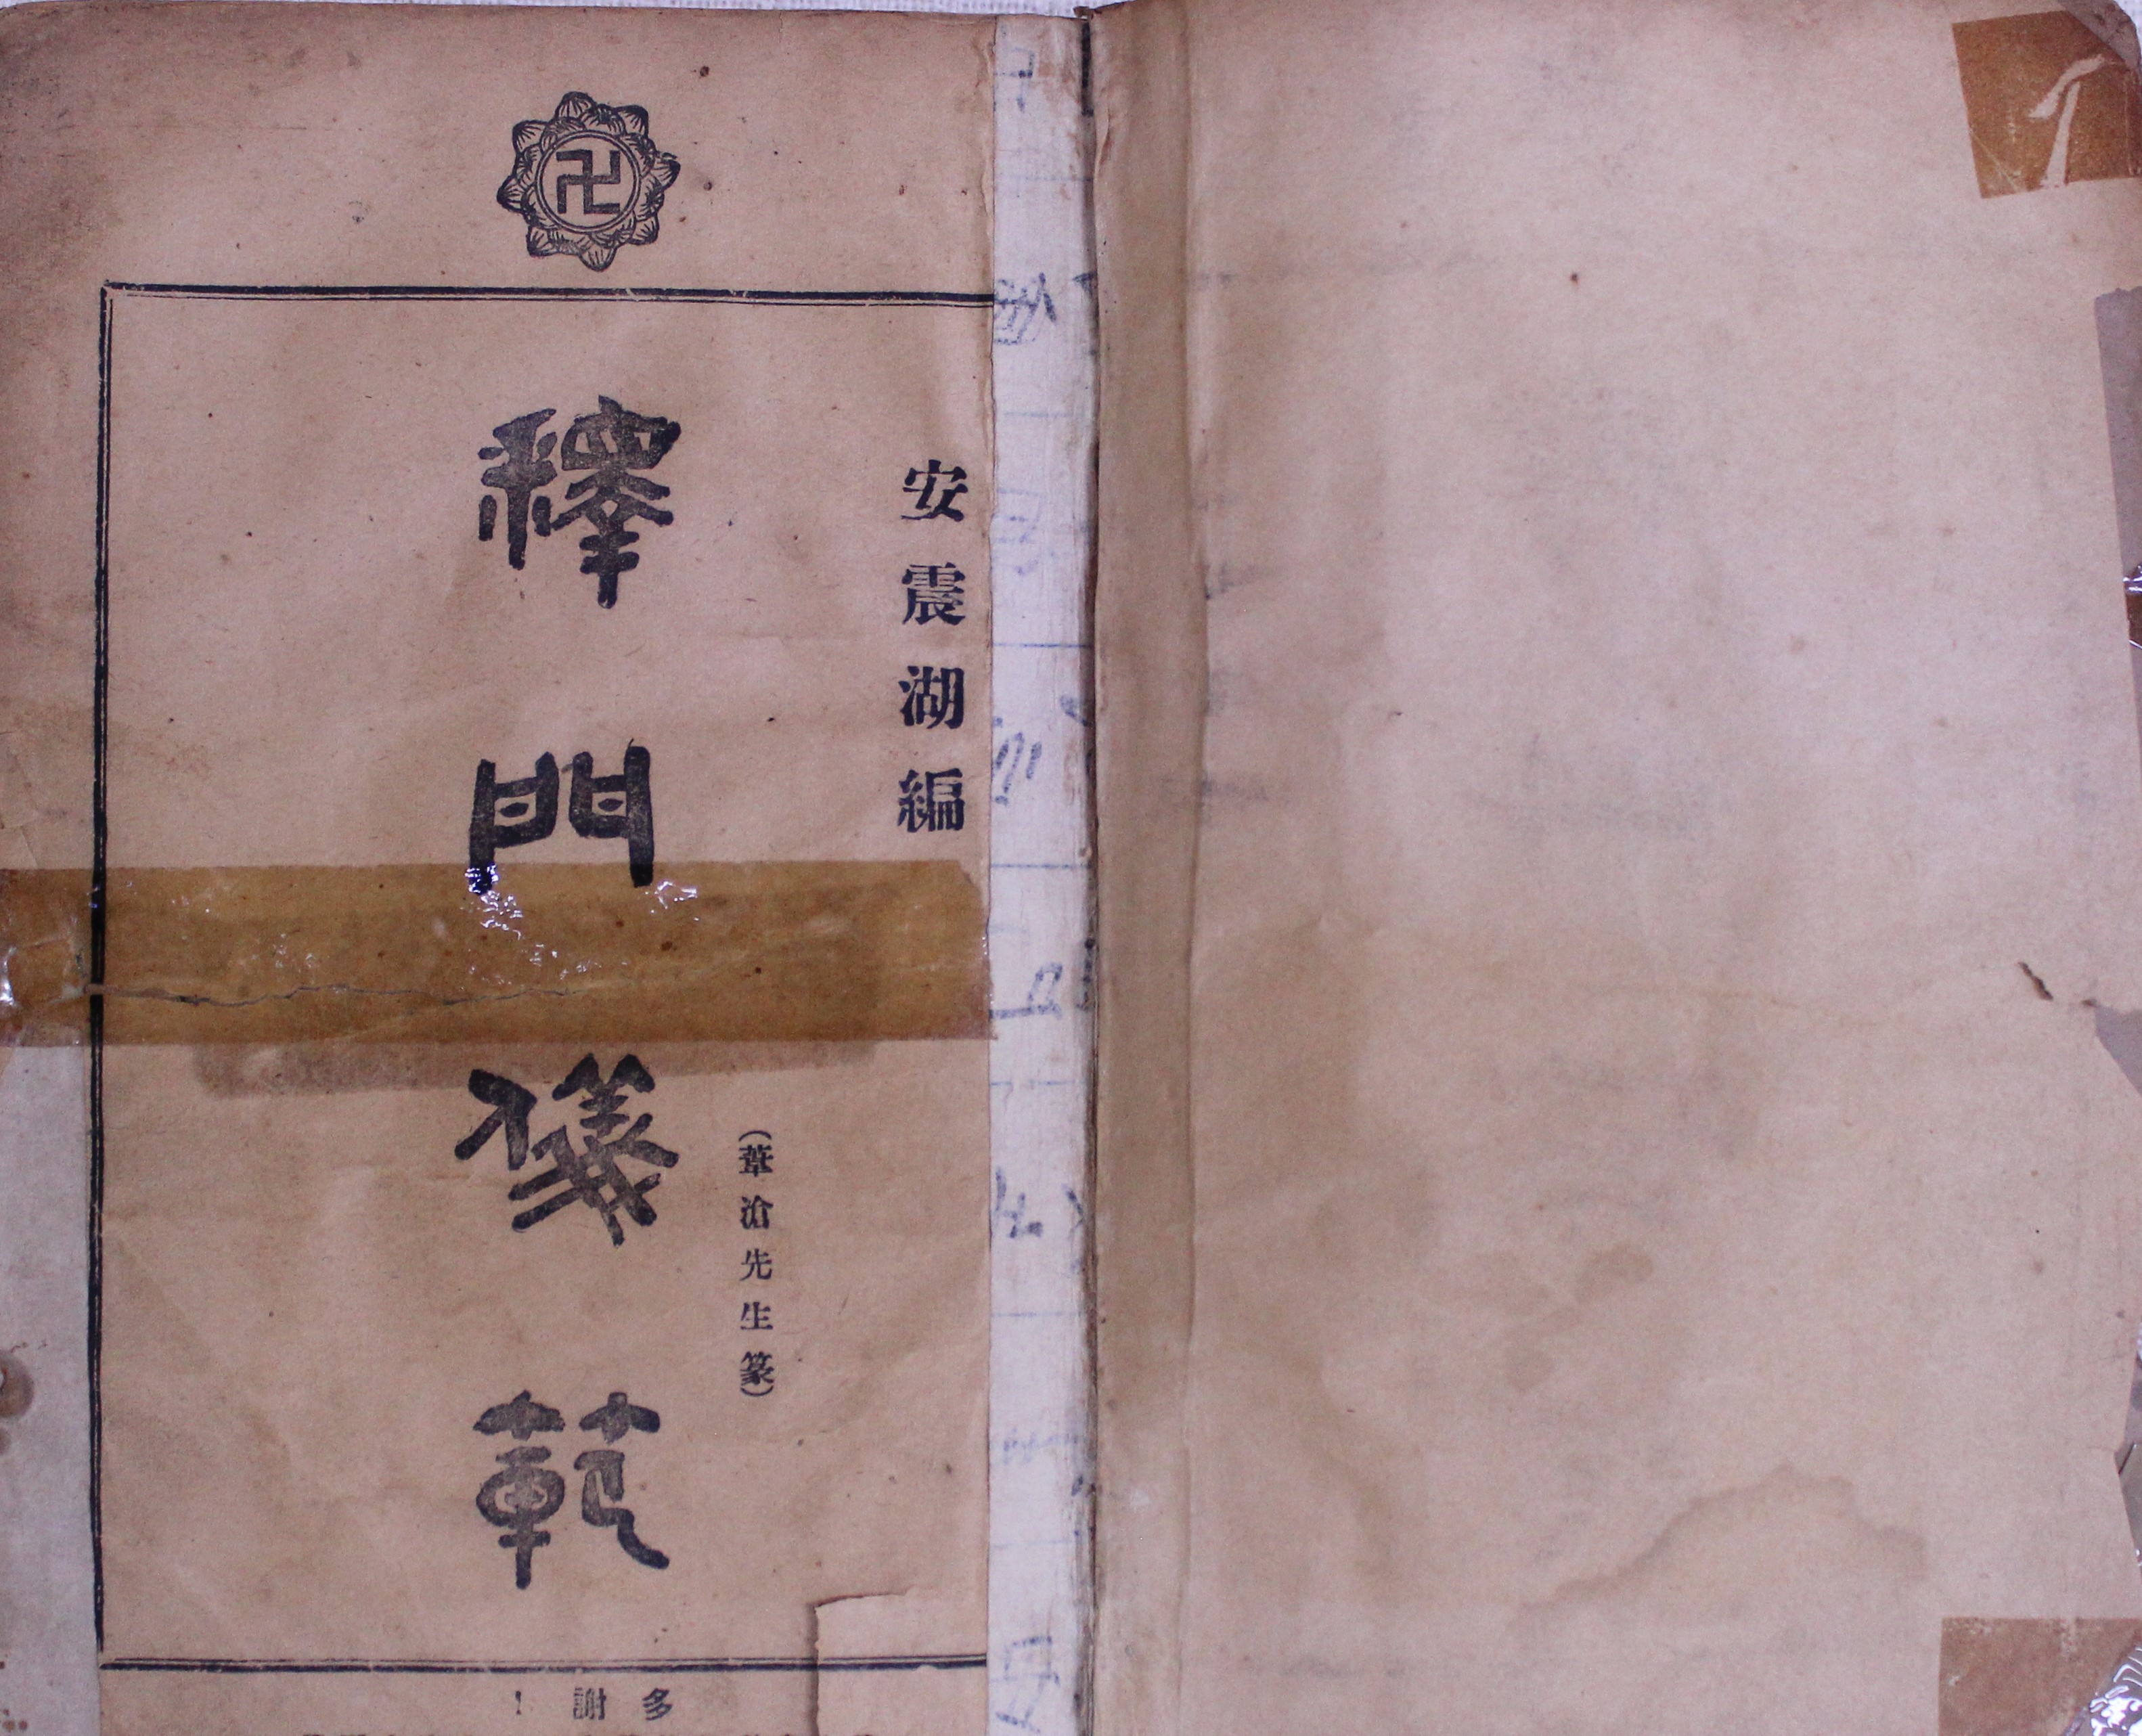 卍
安震湖編
(葦滄先生篆)
釋門儀範
多謝！